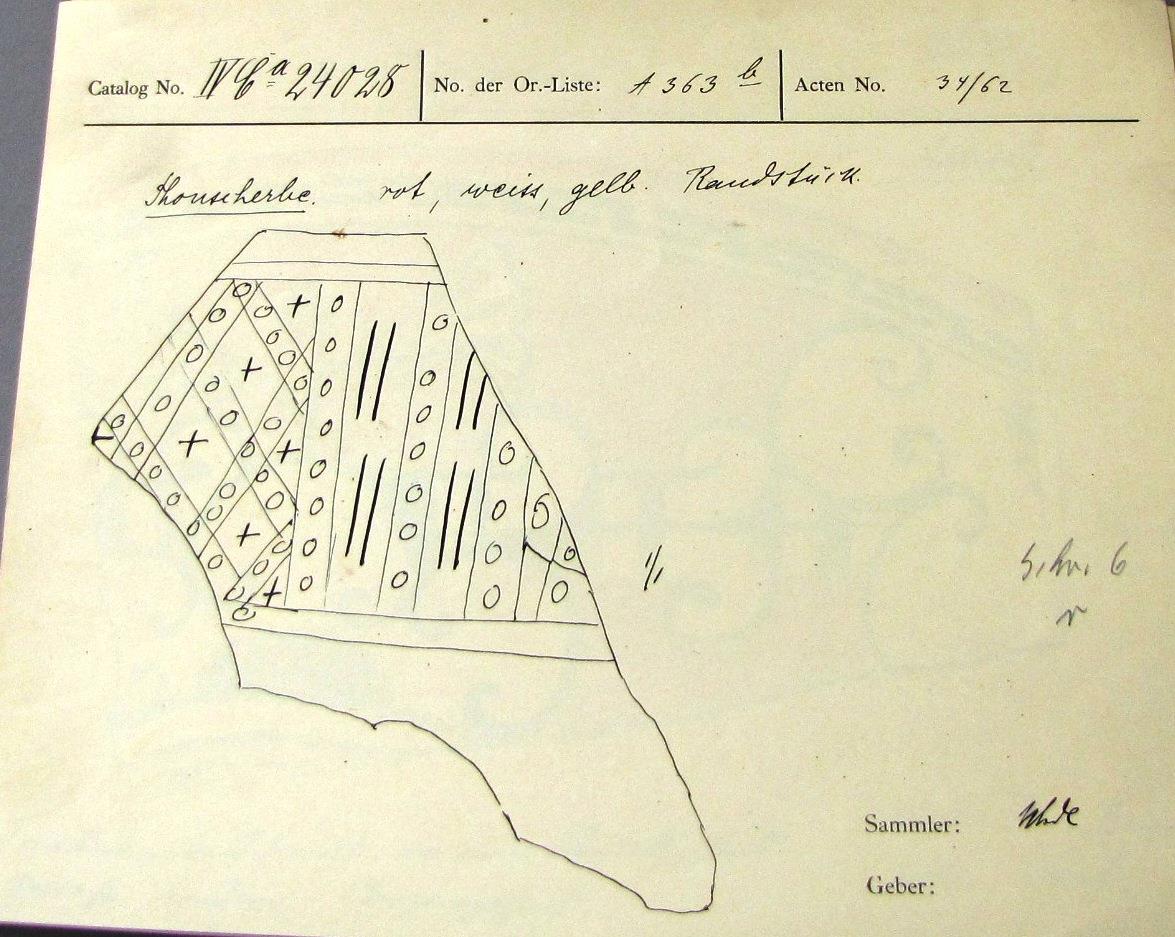 Catalog No. IV Ca 24028 No. der Or.-Liste: A 363 b Acten No. 34/62
Thonscherbe. rot, weiss, gelb. Randstück.
1/1
6
Sammler: Uhde
Geber: